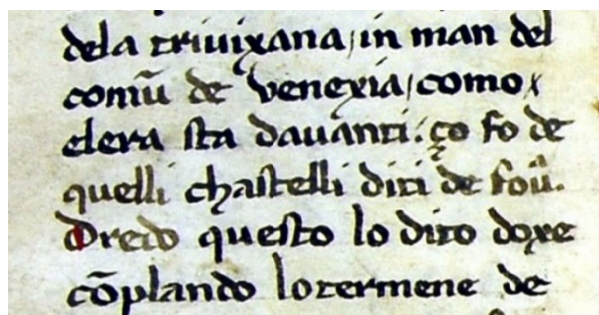 dela trivixana/in man del
comū de venexia/como/
elera sta davanti: ço fo de
quelli chastelli diti de sovͣ.
Dredo questo lo dito doxe
cōplando lo termene de